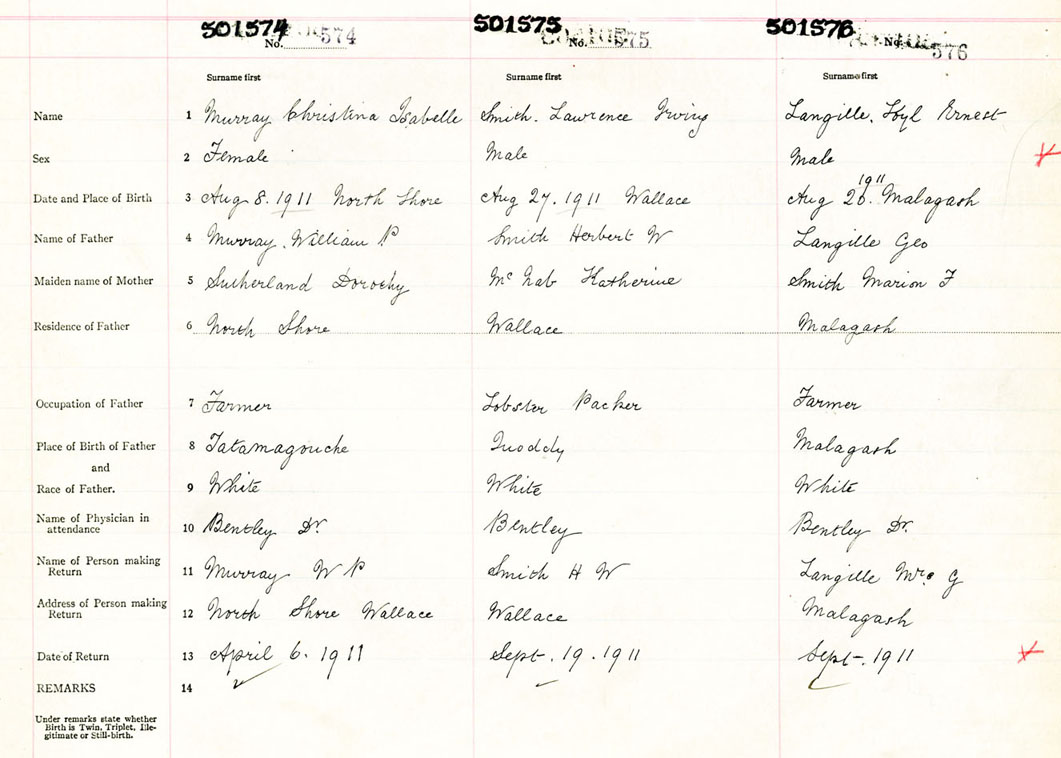 501574 501575 501576
No. 574 No. 575 No. 576
Surname first Surname first Surname first
Name 1 Murray Christina Isabelle Smith. Lawrence Irving Langille, Ernest
Sex 2 Female Male Male
1911
Date and Place of Birth 3 Aug 8. 1911 North Shore Aug 27. 1911 Wallace Aug 26. Malagash
Name of Father 4 Murray. William P Smith Herbert W Langille Geo
Maiden name of Mother 5 Sutherland Dorothy Mc Nab Katherine Smith Marion F
Residence of Father 6 North Shore Wallace Malagash
Occupation of Father 7 Farmer Lobster Packer Farmer
Place of Birth of Father 8 Tatamagouche Quoddy Malagash
and
Race of Father. 9 White White White
Name of Physician in
attendance 10 Bentley Dr. Bentley Bentley Dr.
Name of Person making
Return 11 Murray W P Smith H W Langille Mrs G
Address of Person making
Return 12 North Shore Wallace Wallace Malagash
Date of Return 13 April 6. 1911 Sept. 19. 1911 Sept. 1911
REMARKS 14
Under remarks state whether
Birth is Twin, Triplet, Ille-
gitimate or Still-birth.